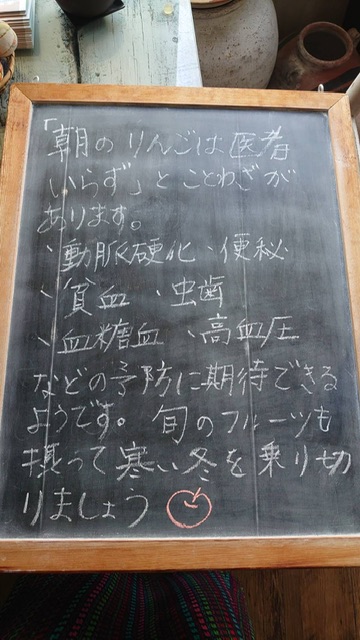 「朝のりんごは医者
いらず」とことわざが
あります。
、動脈硬化 、便秘
、貧血 、虫歯
、血糖血 、高血圧
などの予防に期待できる
ようです。旬のフルーツも
摂って寒い冬を乗り切
りましょう